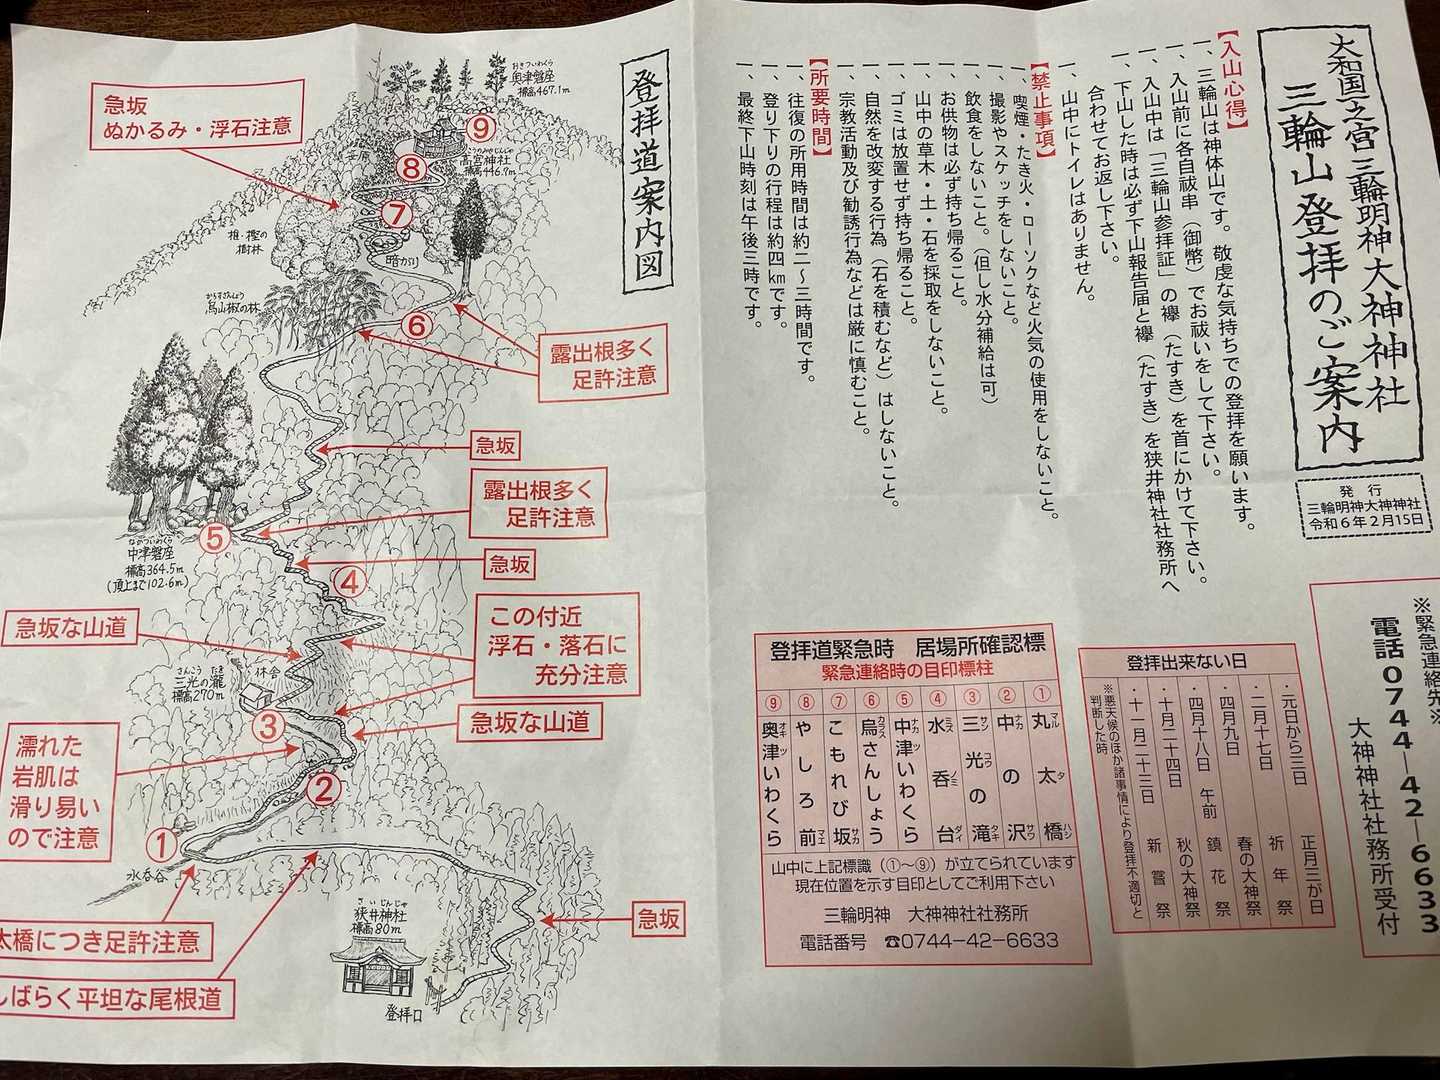 大和国一之宮三輪明神大神神社
三輪山登拝のご案内
発行
三輪明神大神神社
令和6年2月15日
【入山心得】
一、三輪山は神体山です。敬虔な気持ちでの登拝を願います。
一、入山前に各自祓串（御幣）でお祓いをして下さい。
一、入山中は「三輪山参拝証」の襷（たすき）を首にかけて下さい。
一、下山した時は必ず下山報告届と襷（たすき）を狭井神社社務所へ
合わせてお返し下さい。
一、山中にトイレはありません。
【禁止事項】
一、喫煙・たき火・ローソクなど火気の使用をしないこと。
一、撮影やスケッチをしないこと。
一、飲食をしないこと。（但し水分補給は可）
一、お供物は必ず持ち帰ること。
一、山中の草木・土・石を採取をしないこと。
一、ゴミは放置せず持ち帰ること。
一、自然を改変する行為（石を積むなど）はしないこと。
一、宗教活動及び勧誘行為などは厳に慎むこと。
【所要時間】
一、往復の所用時間は約二～三時間です。
一、登り下りの行程は約四㎞です。
一、最終下山時刻は午後三時です。
※緊急連絡先※
電話0744-42-6633
大神神社社務所受付
登拝出来ない日
・元日から三日　正月三が日
・二月十七日　祈年祭
・四月九日　春の大神祭
・四月十八日 午前　鎮花祭
・十月二十四日　秋の大神祭
・十一月二十三日　新嘗祭
※悪天候のほか諸事情により登拝不適切と
判断した時
登拝道緊急時　居場所確認標
緊急連絡時の目印標柱
① 丸太橋 マルタハシ
② 中の沢 ナカサワ
③ 三光の滝 サンコウタキ
④ 水呑台 ミズノミダイ
⑤ 中津いわくら ナカツ
⑥ 烏さんしょう カラス
⑦ こもれび坂 サカ
⑧ やしろ前 マエ
⑨ 奥津いわくら オキツ
山中に上記標識（①～⑨）が立てられています
現在位置を示す目印としてご利用下さい
三輪明神　大神神社社務所
電話番号　☎0744-42-6633
登拝道案内図
おきついわくら
奥津磐座
標高467.1m
⑨
こうのみやじんじゃ
高宮神社
標高446.7m
⑧
急坂
ぬかるみ・浮石注意
⑦
椎・樫の
樹林
暗がり
からすさんしょう
烏山椒の林
⑥
露出根多く
足許注意
急坂
露出根多く
足許注意
⑤
なかついわくら
中津磐座
標高364.5m
(頂上まで102.6m)
急坂
④
この付近
浮石・落石に
充分注意
急坂な山道
さんこう たき
三光の瀧
標高270m
休舎
③
急坂な山道
濡れた
岩肌は
滑り易い
ので注意
②
①
水呑谷
太橋につき足許注意
しばらく平坦な尾根道
さいじんじゃ
狭井神社
標高80m
急坂
登拝口